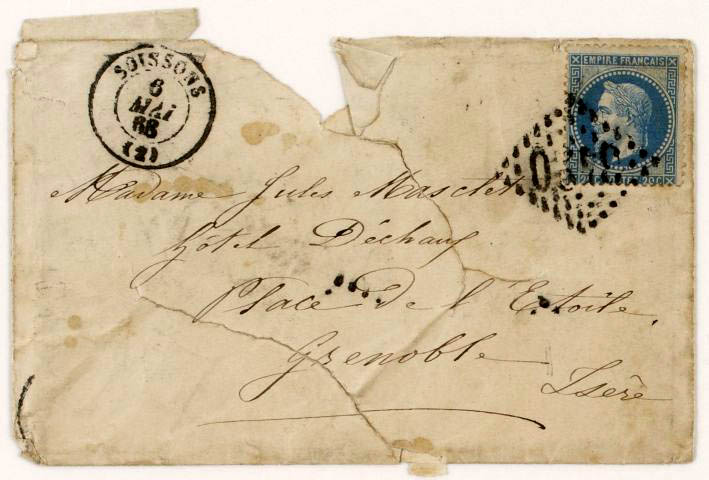 SOISSONS
6
MAI
68
(2)
EMPIRE FRANCAIS
Madame Jules Masclet
Hôtel
Place de l'Etoile,
Grenoble
Isère